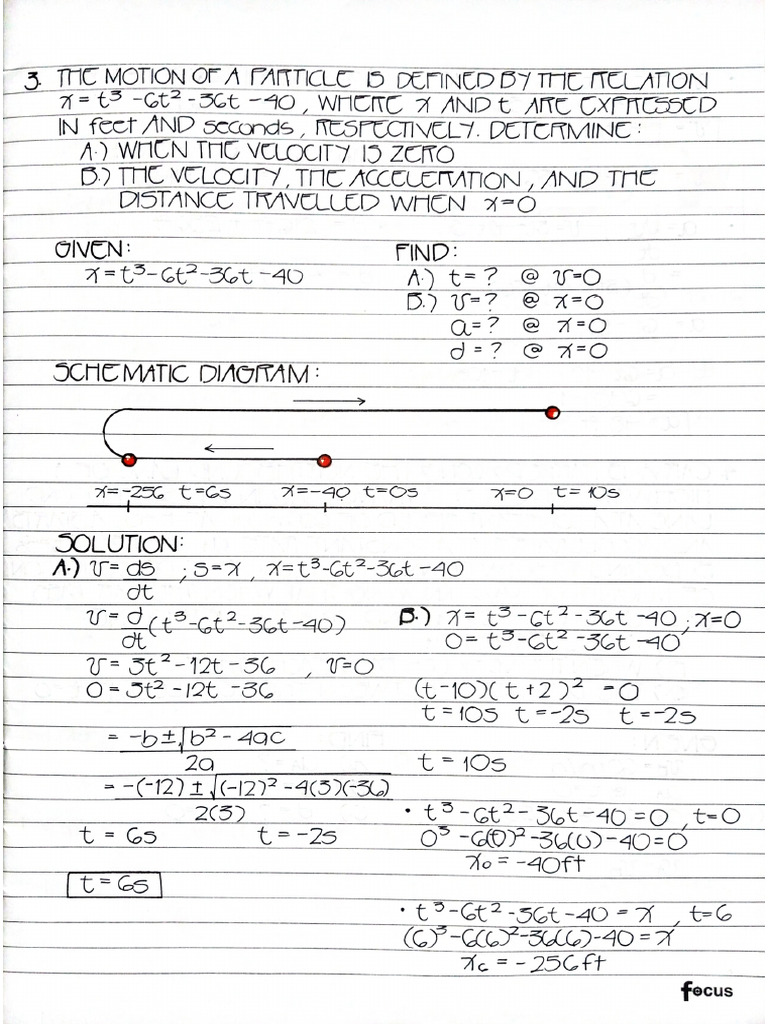 3. THE MOTION OF A PARTICLE IS DEFINED BY THE RELATION
x = t³ - 6t² - 36t - 40, WHERE x AND t ARE EXPRESSED
IN feet AND seconds, RESPECTIVELY. DETERMINE:
A.) WHEN THE VELOCITY IS ZERO
B.) THE VELOCITY, THE ACCELERATION, AND THE
DISTANCE TRAVELLED WHEN x=0
GIVEN:
x = t³-6t²-36t-40
FIND:
A.) t = ? @ v=0
B.) v=? @ x=0
a=? @ x=0
d=? @ x=0
SCHEMATIC DIAGRAM:
x=-256 t=6s x=-40 t=0s x=0 t=10s
SOLUTION:
A.) v = ds/dt ; s=x, x=t³-6t²-36t-40
v = d/dt (t³-6t²-36t-40)
v = 3t²-12t-36 , v=0
0 = 3t²-12t-36
= -b±√b²-4ac / 2a
= -(-12)±√(-12)²-4(3)(-36) / 2(3)
t = 6s t = -2s
t = 6s
B.) x = t³-6t²-36t-40 ; x=0
0 = t³-6t²-36t-40
(t-10)(t+2)² = 0
t = 10s t = -2s t = -2s
t = 10s
• t³-6t²-36t-40=0 , t=0
0³-6(0)²-36(0)-40=0
x₀ = -40ft
• t³-6t²-36t-40 = x , t=6
(6)³-6(6)²-36(6)-40=x
x₆ = -256ft
focus